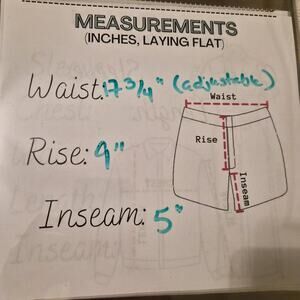 MEASUREMENTS
(INCHES, LAYING FLAT)
Waist: 17 3/4" (adjustable)
Waist
Rise
Rise: 9"
Inseam
Inseam: 5"